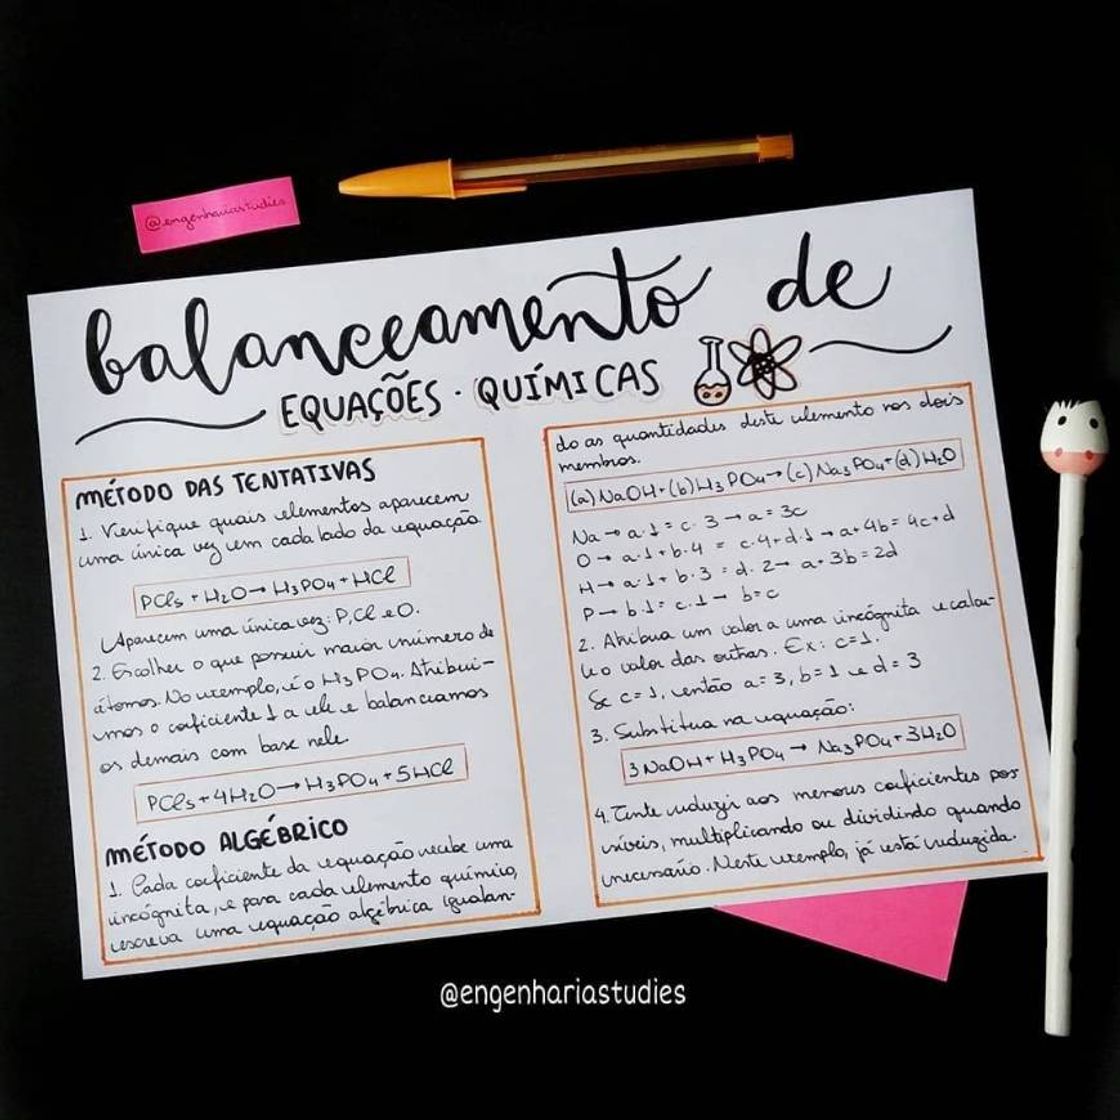 @engenhariastudies
balanceamento de
EQUAÇÕES · QUÍMICAS
MÉTODO DAS TENTATIVAS
1. Verifique quais elementos aparecem
uma única vez em cada lado da equação
PCl₅ + H₂O → H₃PO₄ + HCl
Aparecem uma única vez: P, Cl e O.
2. Escolher o que possuir maior número de
átomos. No exemplo, é o H₃PO₄. Atribuí-
mos o coeficiente 1 a ele e balanceamos
os demais com base nele.
PCl₅ + 4H₂O → H₃PO₄ + 5HCl
MÉTODO ALGÉBRICO
1. Cada coeficiente da equação recebe uma
incógnita, e para cada elemento químico,
escreva uma equação algébrica igualan-
do as quantidades deste elemento nos dois
membros.
(a) NaOH + (b) H₃PO₄ → (c) Na₃PO₄ + (d) H₂O
Na → a·1 = c·3 → a = 3c
O → a·1 + b·4 = c·4 + d·1 → a + 4b = 4c + d
H → a·1 + b·3 = d·2 → a + 3b = 2d
P → b·1 = c·1 → b = c
2. Atribua um valor a uma incógnita e calcu-
le o valor das outras. Ex: c = 1.
Se c = 1, então a = 3, b = 1 e d = 3
3. Substitua na equação:
3NaOH + H₃PO₄ → Na₃PO₄ + 3H₂O
4. Tente reduzir aos menores coeficientes pos
síveis, multiplicando ou dividindo quando
necessário. Neste exemplo, já está reduzida.
@engenhariastudies